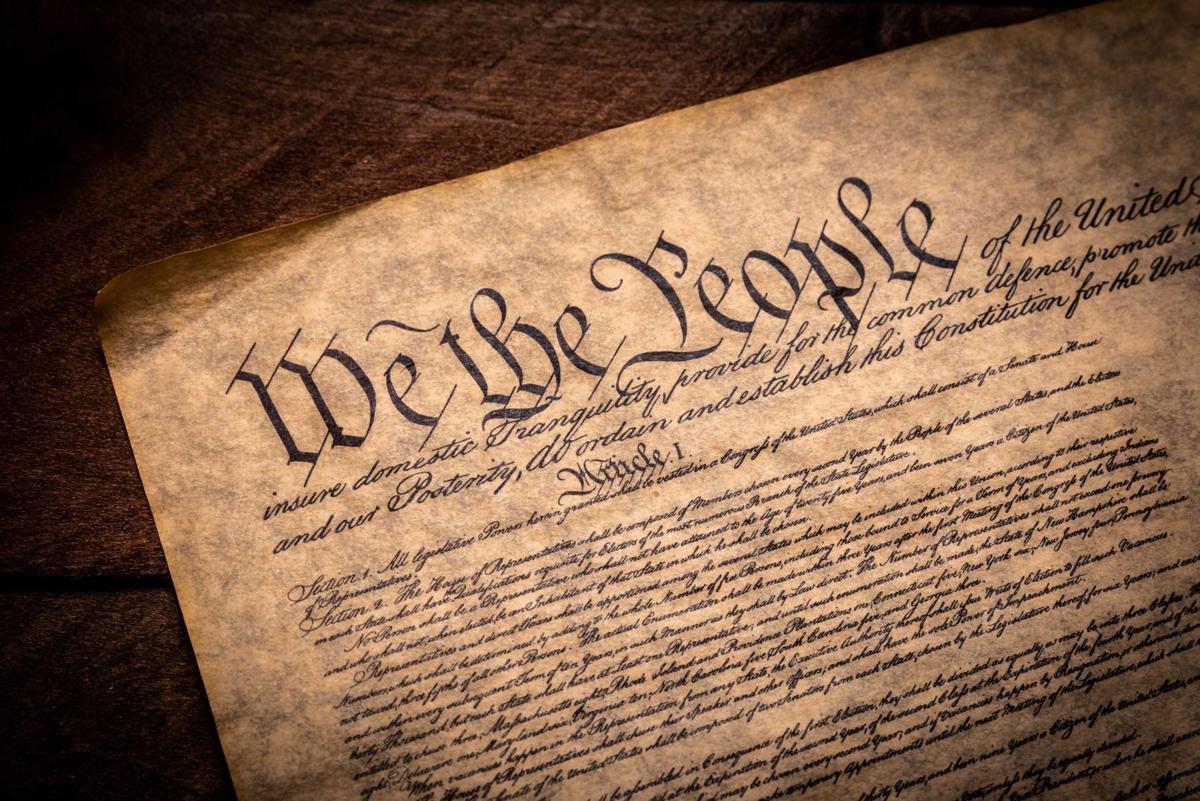 We the People of the United
insure domestic Tranquility, provide for the common defence, promote
and our Posterity, do ordain and establish this Constitution for the
Article I.
Section 1. All legislative Powers herein granted shall be vested in a Congress of the United States, which shall consist of a Senate and House
of Representatives.
Section 2. The House of Representatives shall be composed of Members chosen every second Year by the People of the several States, and the Electors
in each State shall have Qualifications requisite for Electors of the most numerous Branch of the State Legislature.
No Person shall be a Representative who shall not have attained to the Age of twenty five Years, and been seven Years a Citizen of the United States,
and who shall not, when elected, be an Inhabitant of that State in which he shall be chosen.
Representatives and direct Taxes shall be apportioned among the several States which may be included within this Union, according to their respective
Numbers, which shall be determined by adding to the whole Number of free Persons, including those bound to Service for a Term of Years, and excluding Indians
not taxed, three fifths of all other Persons. The actual Enumeration shall be made within three Years after the first Meeting of the Congress of the United States,
and within every subsequent Term of ten Years, in such Manner as they shall by Law direct. The Number of Representatives shall not exceed one for every
thirty Thousand, but each State shall have at Least one Representative; and until such enumeration shall be made, the State of New Hampshire shall be
entitled to chuse three, Massachusetts eight, Rhode Island and Providence Plantations one, Connecticut five, New York six, New Jersey four, Pennsylvania
eight, Delaware one, Maryland six, Virginia ten, North Carolina five, South Carolina five, and Georgia three.
When vacancies happen in the Representation from any State, the Executive Authority thereof shall issue Writs of Election to fill such Vacancies.
The House of Representatives shall chuse their Speaker and other Officers; and shall have the sole Power of Impeachment.
Senate of the United States shall be composed of two Senators from each State, chosen by the Legislature thereof, for six Years; and
shall be assembled in Consequence of the first Election, they shall be divided as equally as may be into three Classes.
at the Expiration of the second Year, of the second Class at the Expiration of the fourth Year,
may be chosen every second Year; and if Vacancies happen by Resignation, or otherwise,
make temporary Appointments until the next Meeting of the Legislature, which shall
thirty Years, and been nine Years a Citizen of the United
unless they be equally divided.